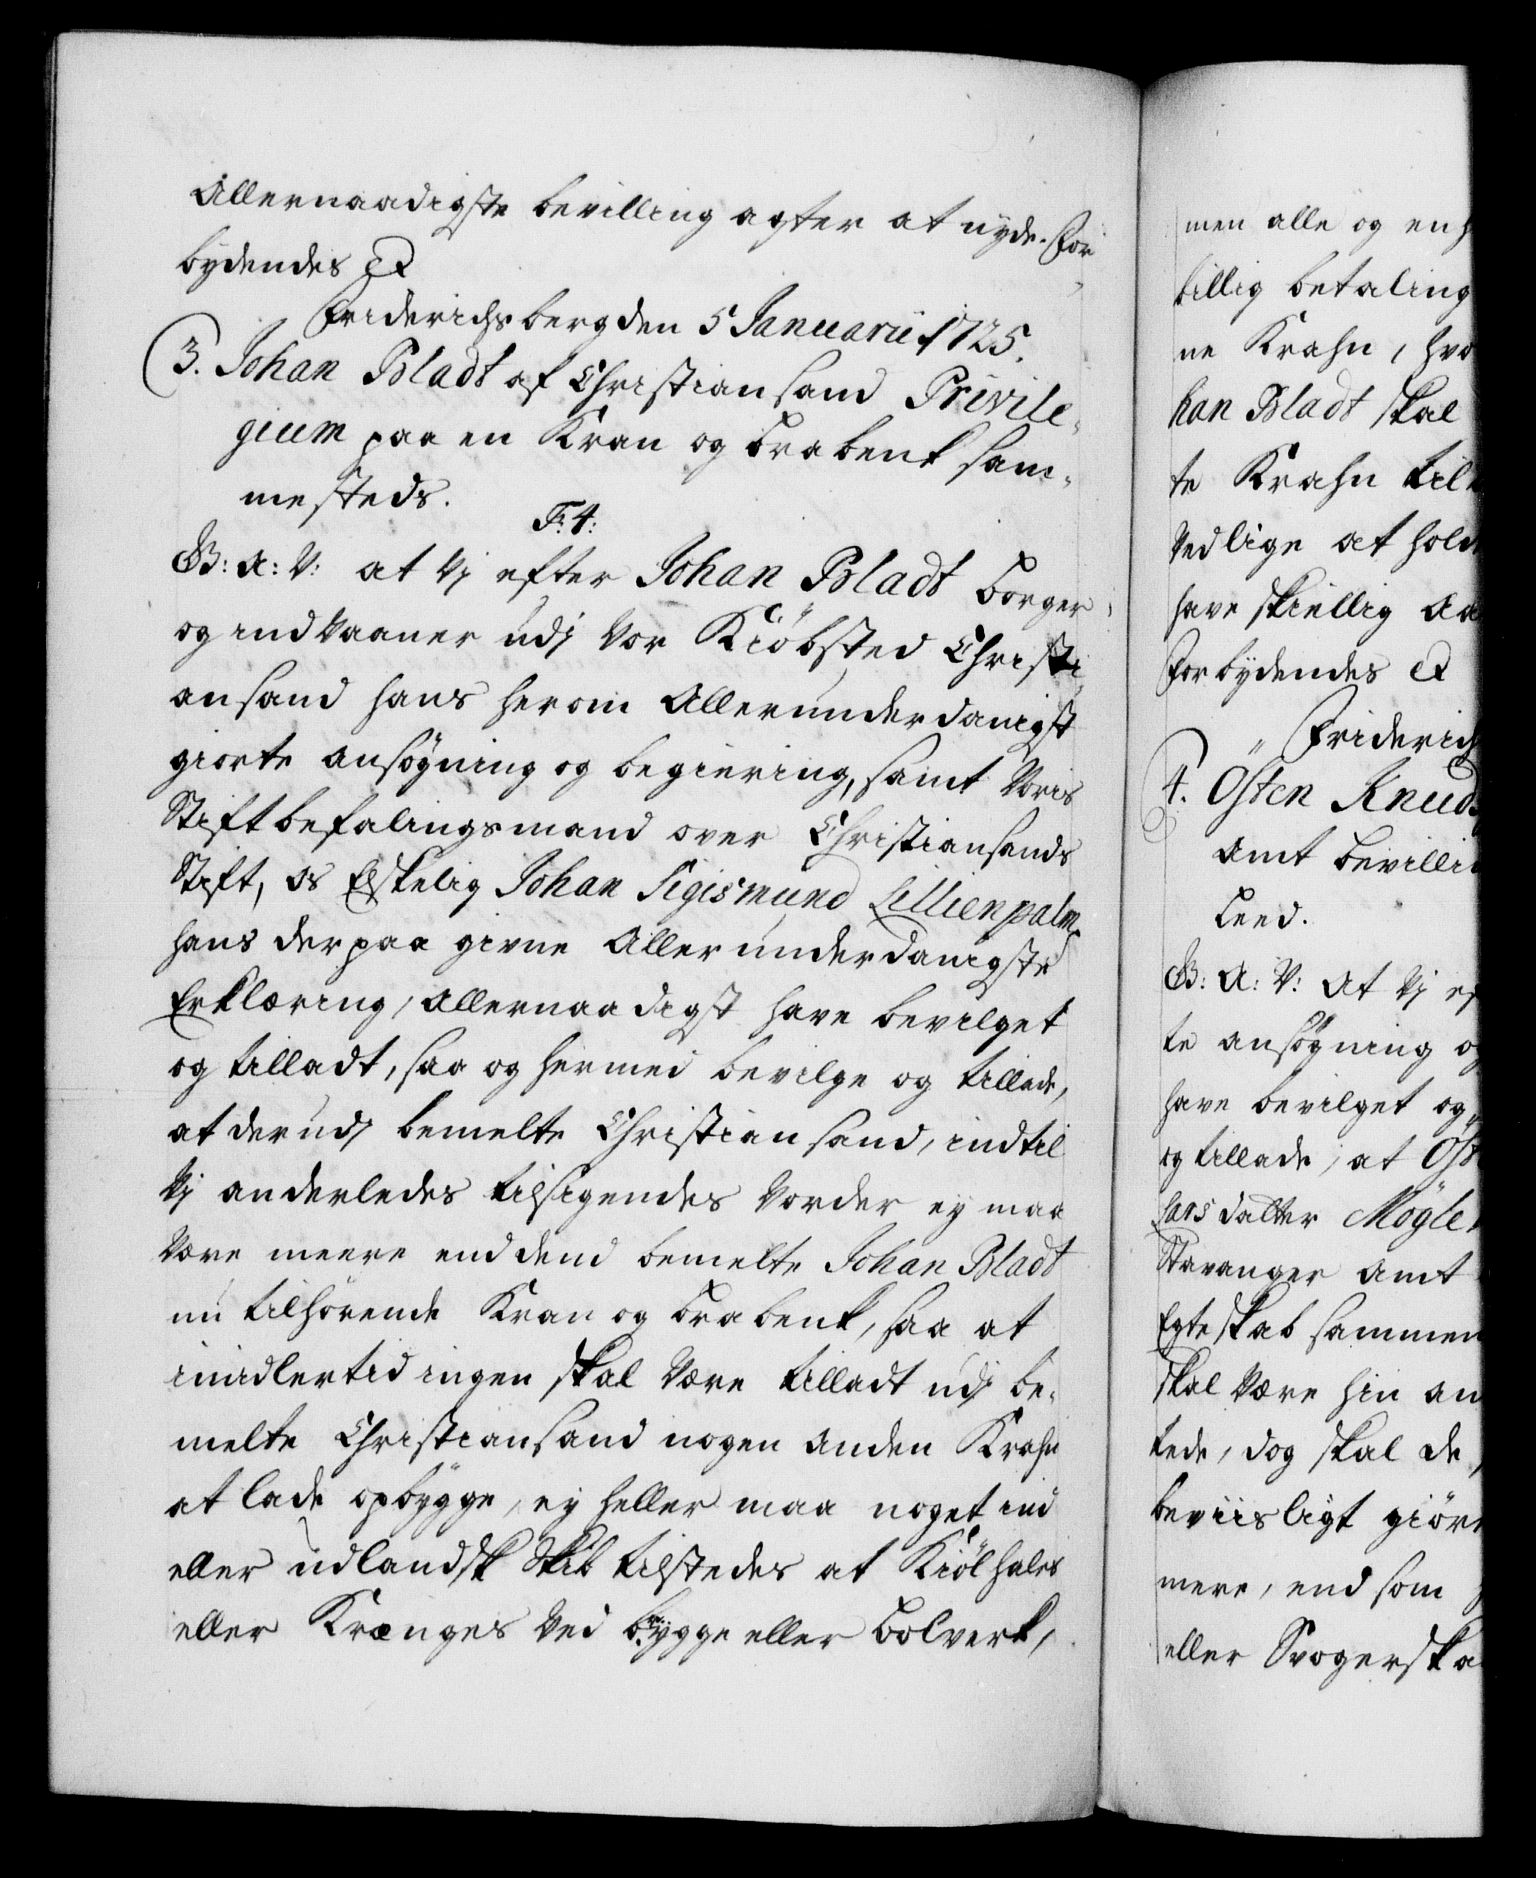 Allernaadigste bevilling agter at nyde. For
bydendes &
Friderichsberg den 5 Januarii 1725.
3. Johan Bladt af Christiansand Privile-
gium paa en Kran og Brabenk sam-
mesteds.
F: 4:
G. B: A: V: at Vj efter Johan Bladt Borger
og indvaaner udj vor Kiöbsted Christi
ansand hans herom Allerunderdanigst
giorte ansögning og begiering, samt Voris
Stiftbefalingsmand over Christiansands
Stift, os Elskelig Johan Sigismund Lillienpalm
hans derpaa givne Allerunderdanigste
Erklæring, Allernaadigst have bevilget
og tilladt, saa og hermed bevilge og tillade,
at der udj bemelte Christiansand, indtil
Vj anderledes tilsigendes vorder ey maa
være meere end dend bemelte Johan Bladt
nu tilhörende Kran og Brabenk, saa at
imidlertid ingen skal være tilladt udj be-
melte Christiansand nogen anden Krahn
at lade opbygge, ey heller maa noget ind
eller udlandsk Skib tilstedes at Kiölhales
eller Krænges ved brygge eller Bolverk,
men alle og en h
billig betaling
ne Krahn, hvo
han Bladt skal
te Krahn til
Vedlige at hold
have skiellig Aa
Forbydendes &
Friderich
4. Osten Knuds
Amt bevilli
Leed.
B: A: V: At Vj ef
te ansögning o
have bevilget og
og tillade, at Öst
Larsdatter Mögle
Stavanger Amt
Egteskab sammen
skal være hin an
tede, dog skal de
beviisligt giöre
mere, end som
eller Svogerska